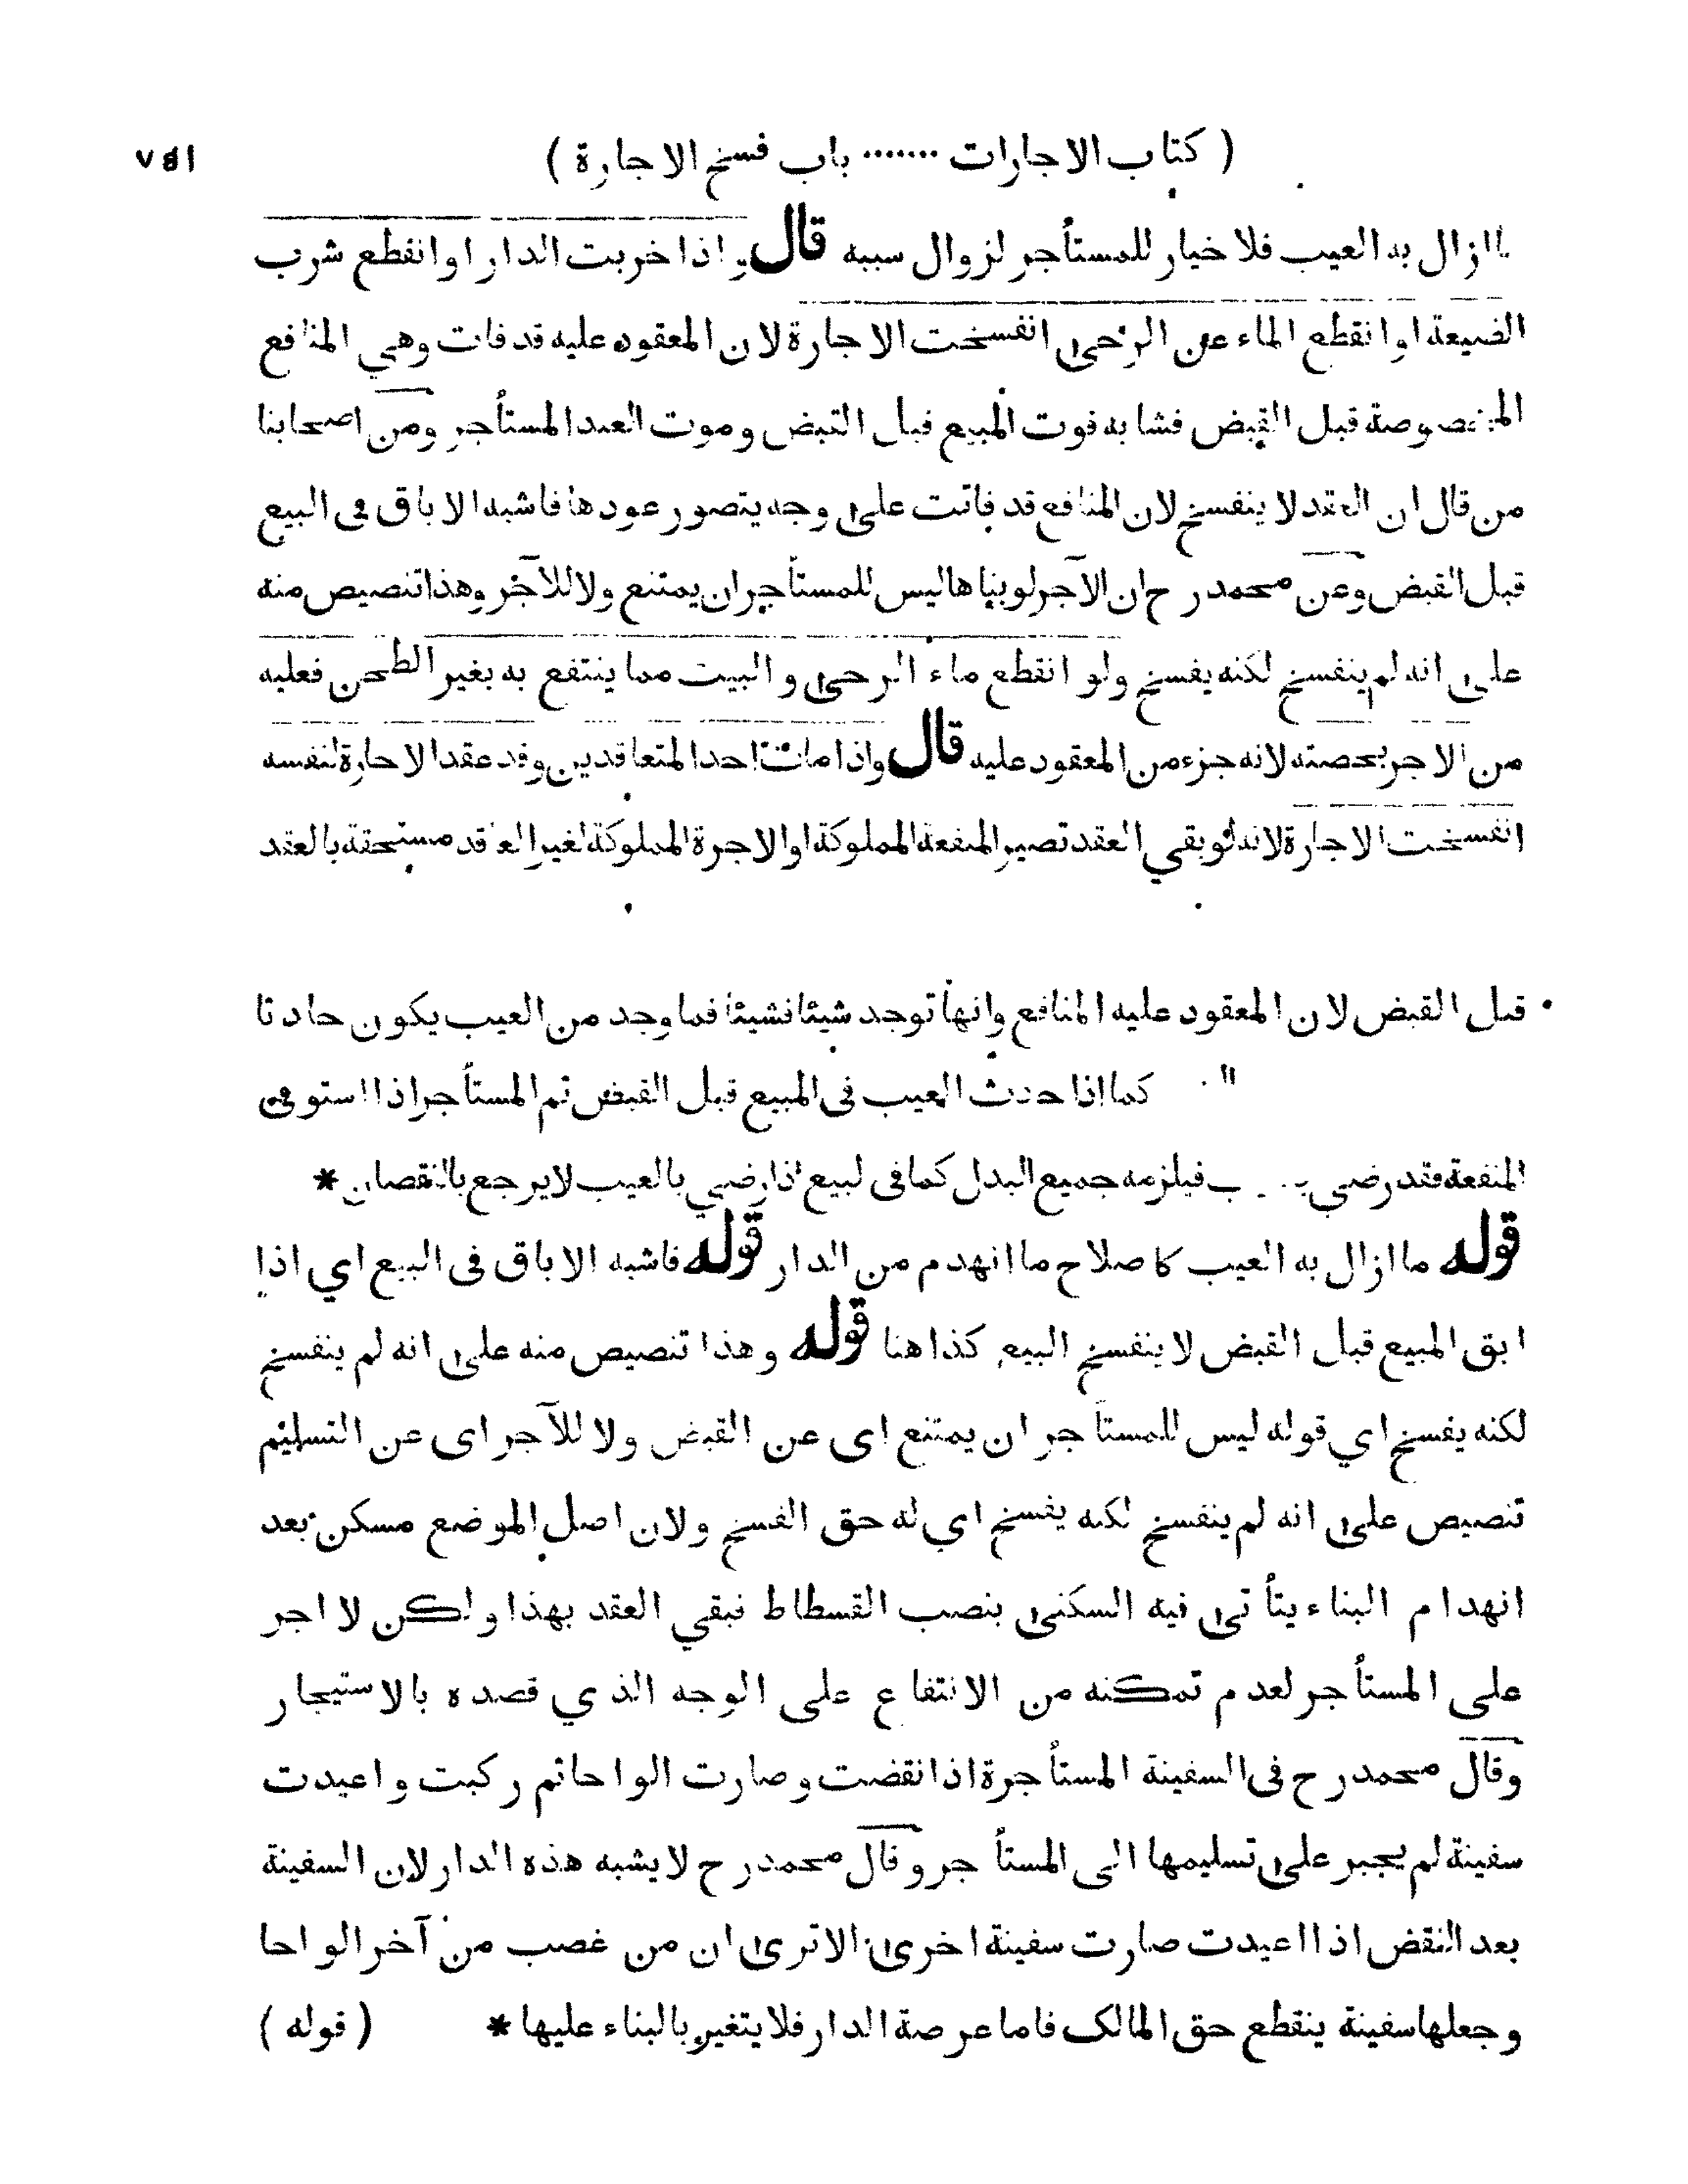 ( كتاب الاجارات ······· باب فسخ الاجارة )
ازال به العيب فلا خيار للمستأجر لزوال سببه قال واذا خربت الدار او انقطع شرب
الضيعة او انقطع الماء عن الرحى انفسخت الاجارة لان المعقود عليه قد فات وهي المنافع
المخصوصة قبل القبض فشابه فوت المبيع قبل القبض وموت العبد المستأجر ومن اصحابنا
من قال ان العقد لا ينفسخ لان المنافع قد فاتت على وجه يتصور عودها فاشبه الاباق فى البيع
قبل القبض وعن محمد رح ان الآجر لو بناها ليس للمستأجر ان يمتنع ولا للآجر وهذا تنصيص منه
على انه لم ينفسخ لكنه يفسخ ولو انقطع ماء الرحى والبيت مما ينتفع به بغير الطحن فعليه
من الاجر بحصته لانه جزء من المعقود عليه قال واذا مات احد المتعاقدين وقد عقد الاجارة لنفسه
انفسخت الاجارة لانه لو بقي العقد تصير المنفعة المملوكة او الاجرة المملوكة لغير العاقد مستحقة بالعقد
قبل القبض لان المعقود عليه المنافع وانها توجد شيئا فشيئا فما وجد من العيب يكون حادثا
كما اذا حدث العيب فى المبيع قبل القبض ثم المستأجر اذا استوفى
المنفعة فقد رضي فيلزمه جميع البدل كما فى لبيع اذا رضي بالعيب لا يرجع بالنقصان *
قوله ما ازال به العيب كاصلاح ما انهدم من الدار قوله فاشبه الاباق فى البيع اي اذا
ابق المبيع قبل القبض لا ينفسخ البيع كذا هنا قوله وهذا تنصيص منه على انه لم ينفسخ
لكنه يفسخ اي قوله ليس للمستأجر ان يمتنع اى عن القبض ولا للآجر اى عن التسليم
تنصيص على انه لم ينفسخ لكنه يفسخ اي له حق الفسخ ولان اصل الموضع مسكن بعد
انهدام البناء يتأتى فيه السكنى بنصب الفسطاط فبقي العقد بهذا ولكن لا اجر
على المستأجر لعدم تمكنه من الانتفاع على الوجه الذي قصده بالاستيجار
وقال محمد رح فى السفينة المستأجرة اذا نقضت وصارت الواحا ثم ركبت واعيدت
سفينة لم يجبر على تسليمها الى المستأجر وقال محمد رح لا يشبه هذه الدار لان السفينة
بعد النقض اذا اعيدت صارت سفينة اخرى الا ترى ان من غصب من آخر الواحا
وجعلها سفينة ينقطع حق المالك فاما عرصة الدار فلا يتغير بالبناء عليها * ( قوله )